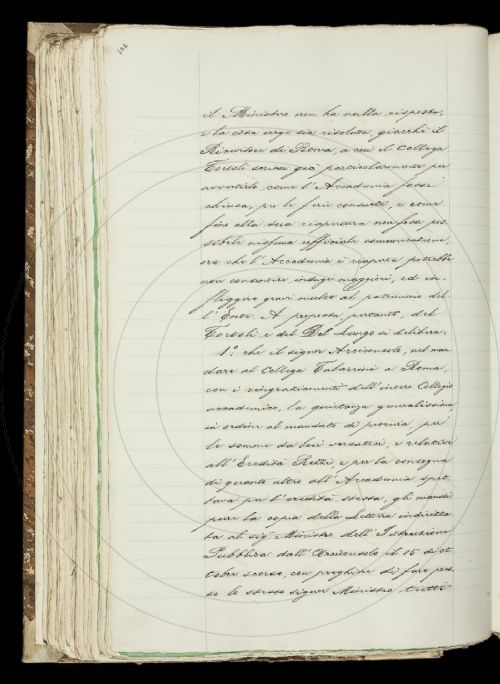 il Ministro non ha nulla risposto,
e la cosa urge sia risoluta, giacchè il
Ricevitore di Roma, a cui il Collega
Tortoli scrisse già particolarmente per
avvertirlo come l'Accademia fosse
chiusa, per le ferie consuete, e come
fino alla sua riapertura non fosse pos-
sibile nissuna ufficiale comunicazione,
ora che l'Accademia è riaperta potrebbe
non consentire indugi maggiori, ed in-
fliggere gravi multe al patrimonio del-
l'Ente. A proposta pertanto, del
Tortoli e del Del Lungo si delibera:
1.° che il signor Arciconsolo, nel man-
dare al Collega Tabarrini a Roma,
con i ringraziamenti dell'intero Collegio
accademico, la quietanza generalissima,
in ordine al mandato di procura, per
le somme da lui versateci, e relative
all'Eredità Rezzi, e per la consegna
di quanto altro all'Accademia spet-
tava per l'eredità stessa, gli mandi
pure la copia della Lettera indirizza-
ta al sig. Ministro dell'Istruzione
Pubblica dall'Arciconsolo il 15 di ot-
tobre scorso, con preghiera di fare pres-
so lo stesso signor Ministro tutti